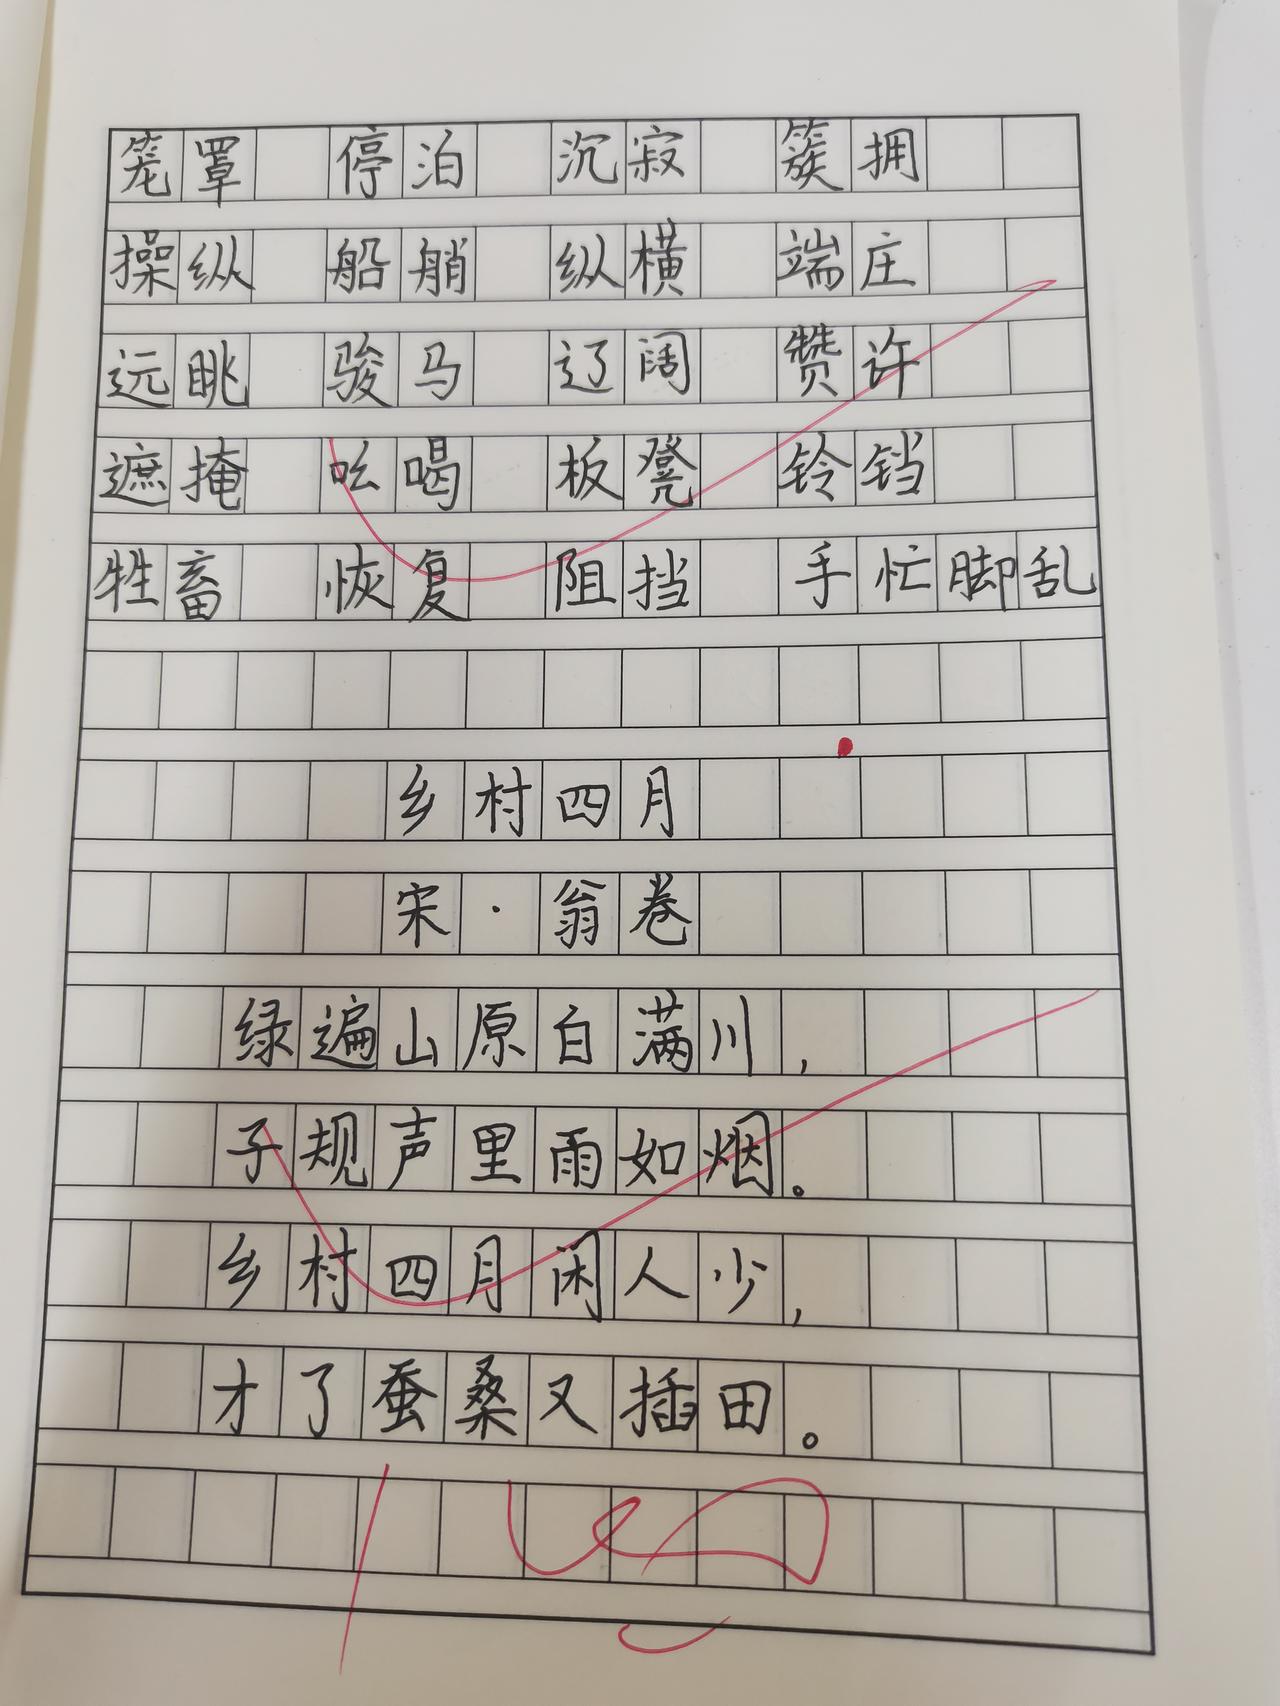 笼罩 停泊 沉寂 簇拥
操纵 船艄 纵横 端庄
远眺 骏马 辽阔 赞许
遮掩 吆喝 板凳 铃铛
牲畜 恢复 阻挡 手忙脚乱
乡村四月
宋·翁卷
绿遍山原白满川，
子规声里雨如烟。
乡村四月闲人少，
才了蚕桑又插田。